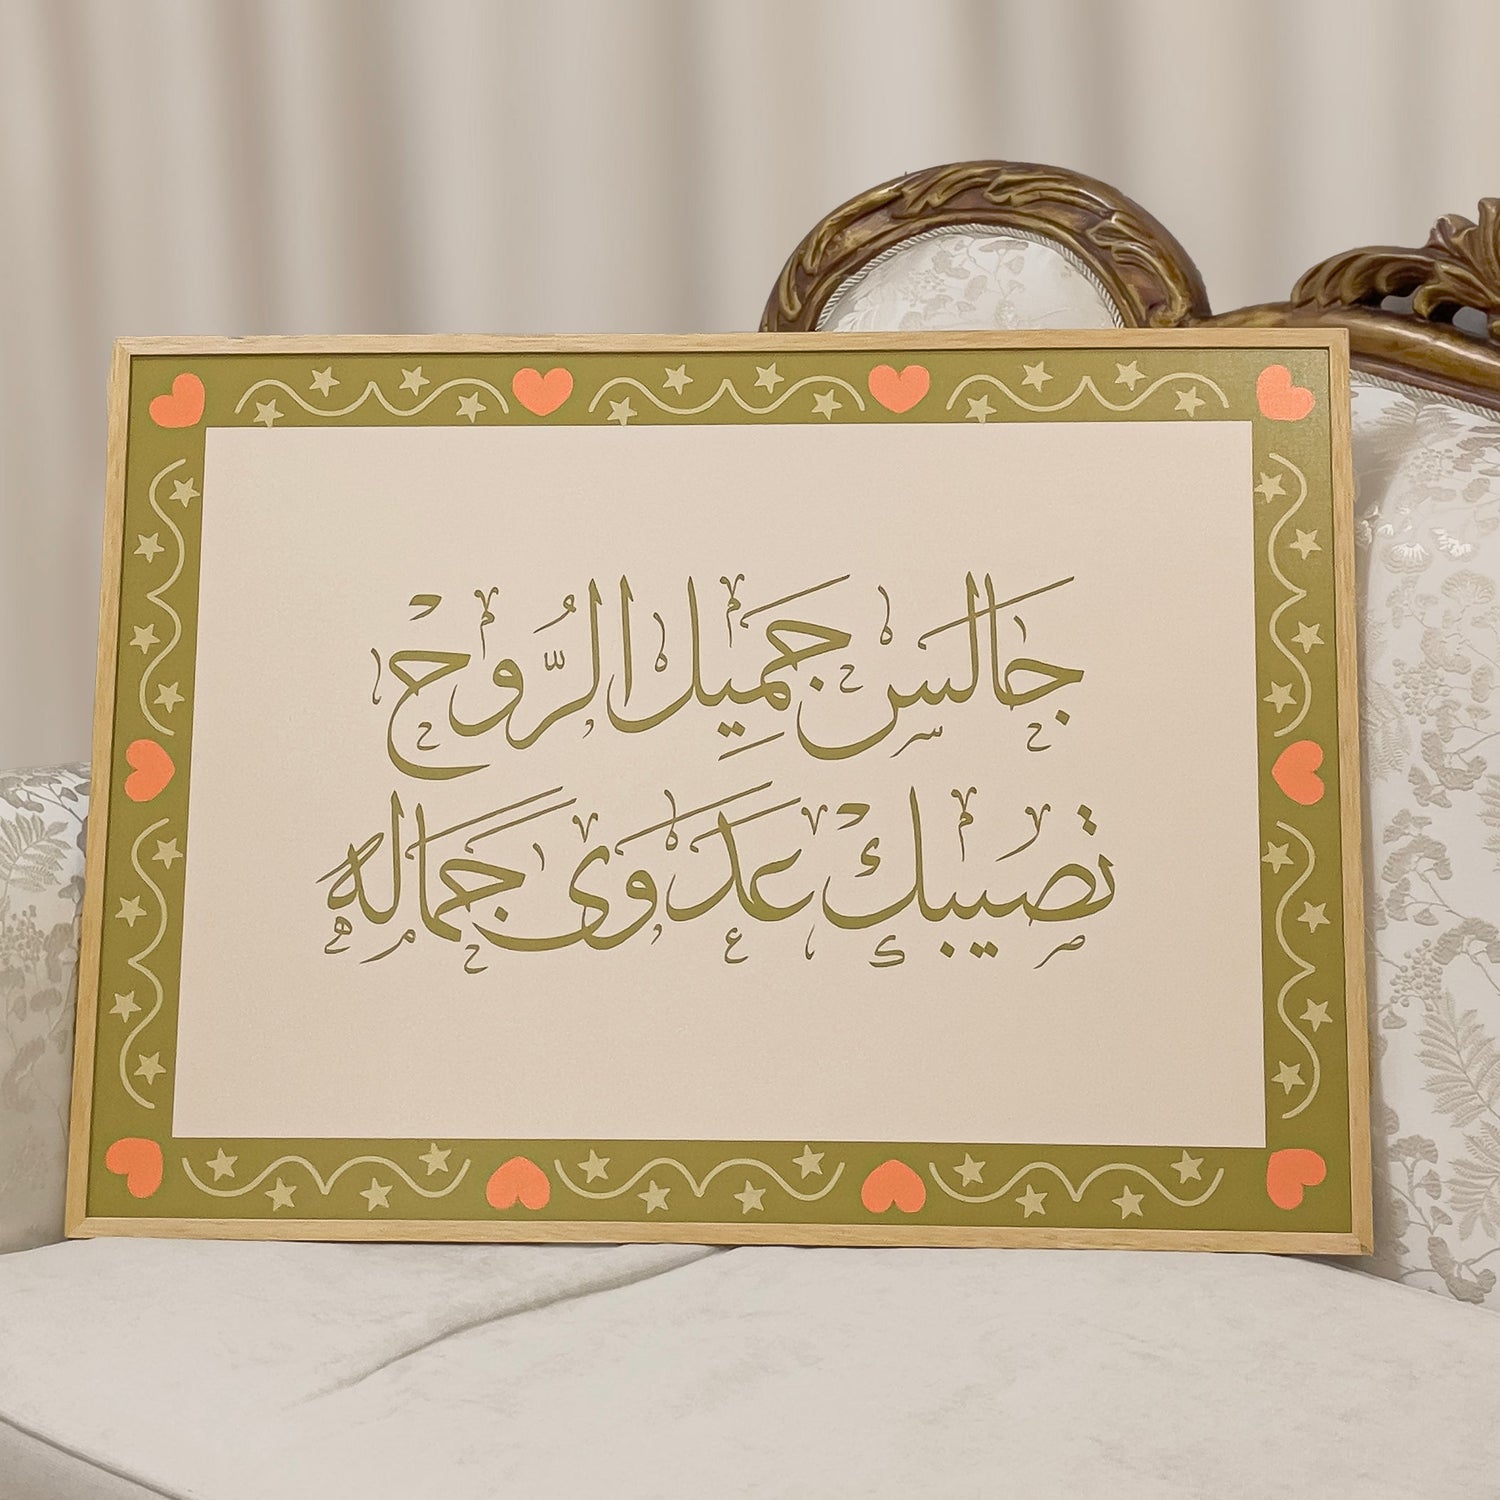 جَالس جَمِيل الرُّوح
تصيبك عَدوَى جَماله